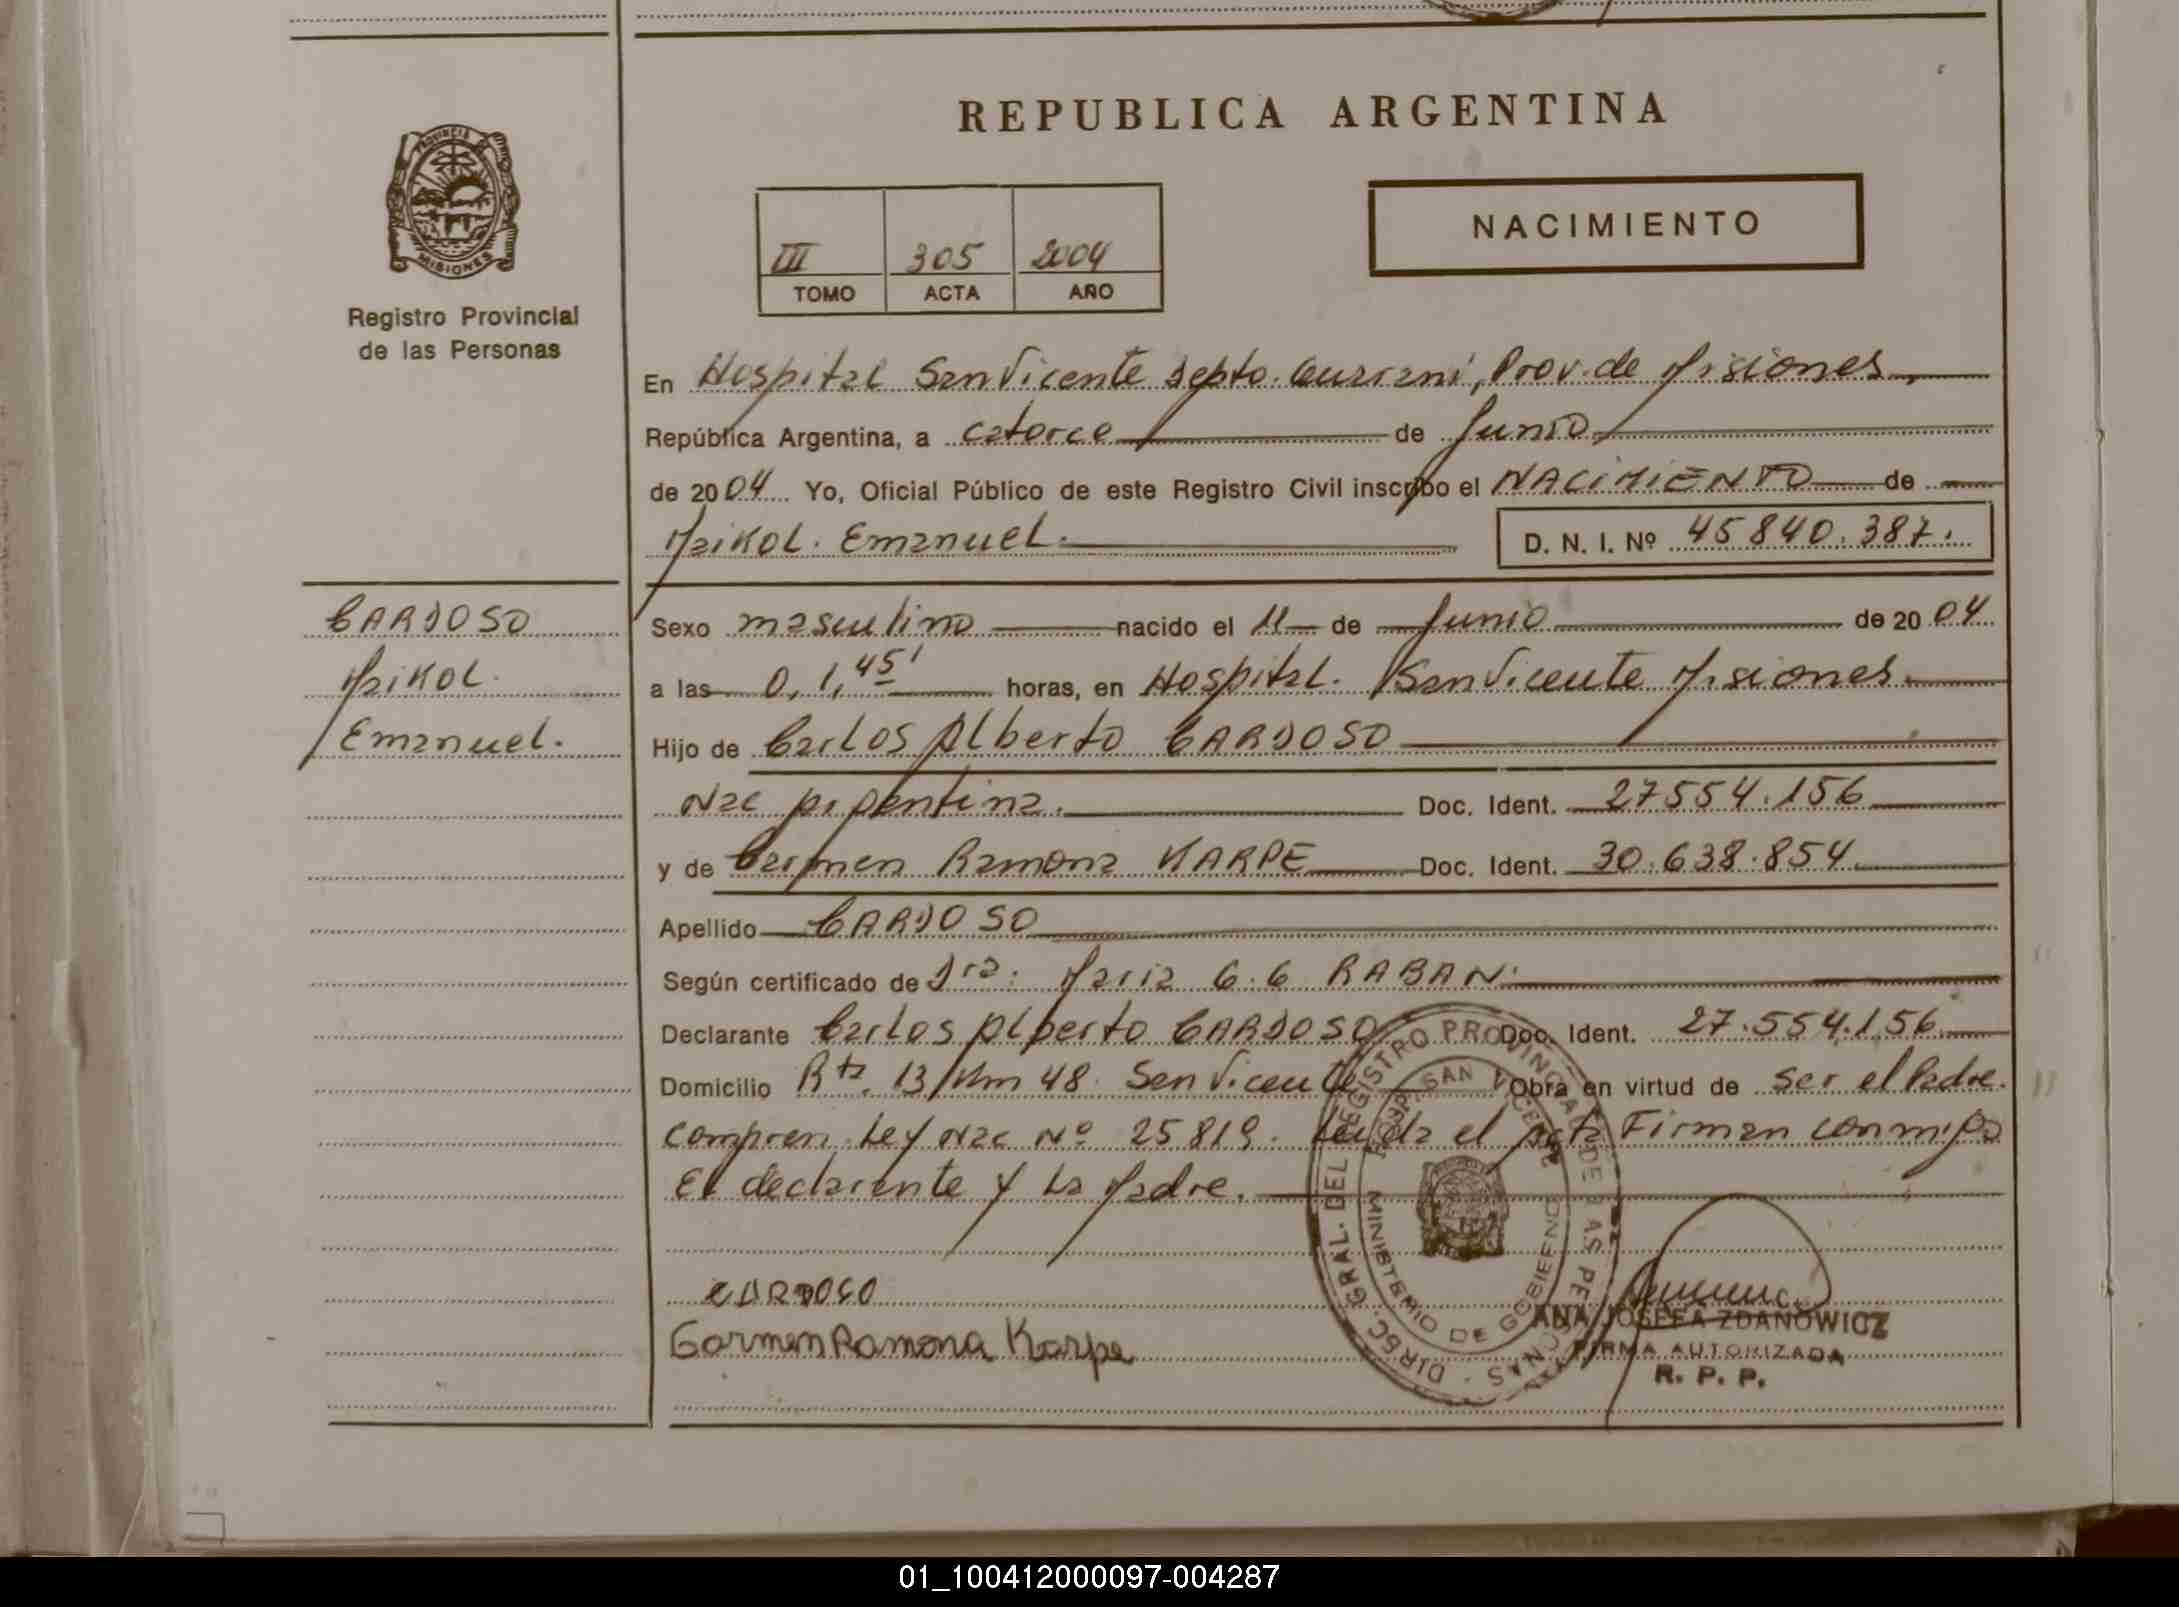 REPUBLICA ARGENTINA
PROVINCIA DE MISIONES
Registro Provincial
de las Personas
III 305 2004
TOMO ACTA AÑO
NACIMIENTO
En Hospital San Vicente Depto. Guarani, Prov. de Misiones
República Argentina, a catorce de Junio
de 2004 Yo, Oficial Público de este Registro Civil inscribo el NACIMIENTO de
Maikol. Emanuel. D. N. I. Nº 45840.387.
CARDOSO
Maikol.
Emanuel.
Sexo masculino nacido el 11 de Junio de 2004
a las 0,1,45' horas, en Hospital. San Vicente Misiones
Hijo de Carlos Alberto CARDOSO
Nac Argentina. Doc. Ident. 27554.156
y de Carmen Ramona KARPE Doc. Ident. 30.638.854
Apellido CARDOSO
Según certificado de Dra. Maria G. G RABAN.
Declarante Carlos Alberto CARDOSO Doc. Ident. 27.554.156
Domicilio Rta. 13 Km 48. San Vicente Obra en virtud de ser el Padre.
Compren. Ley Nac Nº 25819. Leida el Acta Firman conmigo
El declarante y La Madre.
CARDOSO
Carmen Ramona Karpe
DIREC. GRAL. DEL REGISTRO PROVINCIAL DE LAS PERSONAS
SAN VICENTE
MINISTERIO DE GOBIERNO
ANA JOSEFA ZDANOWICZ
FIRMA AUTORIZADA
R. P. P.
01_100412000097-004287